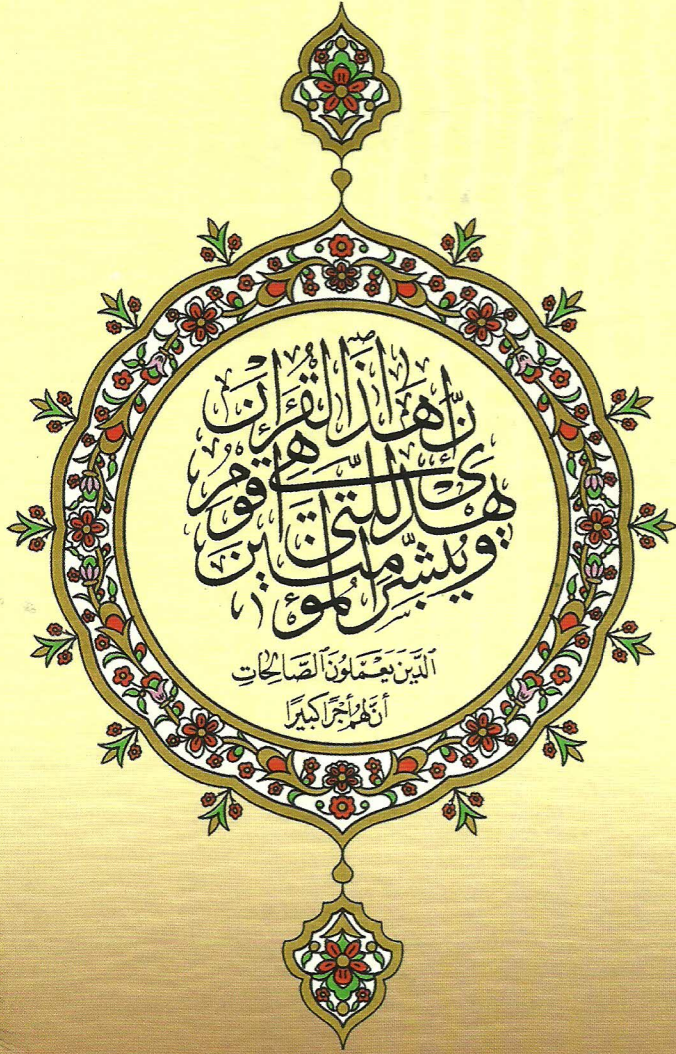 إِنَّ هَٰذَا الْقُرْآنَ
يَهْدِي لِلَّتِي هِيَ أَقْوَمُ
وَيُبَشِّرُ الْمُؤْمِنِينَ
الَّذِينَ يَعْمَلُونَ الصَّالِحَاتِ
أَنَّ لَهُمْ أَجْرًا كَبِيرًا